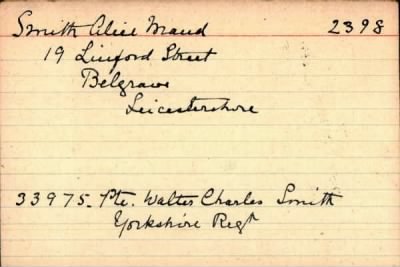 Smith Alice Maud 2398
19 Linford Street
Belgrave
Leicestershire
33975. Pte. Walter Charles Smith
Yorkshire Regt